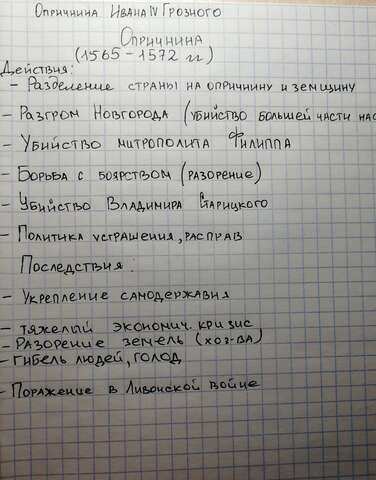 Опричнина Ивана IV Грозного
Опричнина
(1565-1572 гг)
Действия:
- Разделение страны на опричнину и земщину
- Разгром Новгорода (убийство большей части нас
- Убийство митрополита Филиппа
- Борьба с боярством (разорение)
- Убийство Владимира Старицкого
- Политика устрашения, расправ
Последствия:
- Укрепление самодержавия
- тяжелый экономич. кризис
- Разорение земель (хоз-ва)
- гибель людей, голод
- Поражение в Ливонской войне